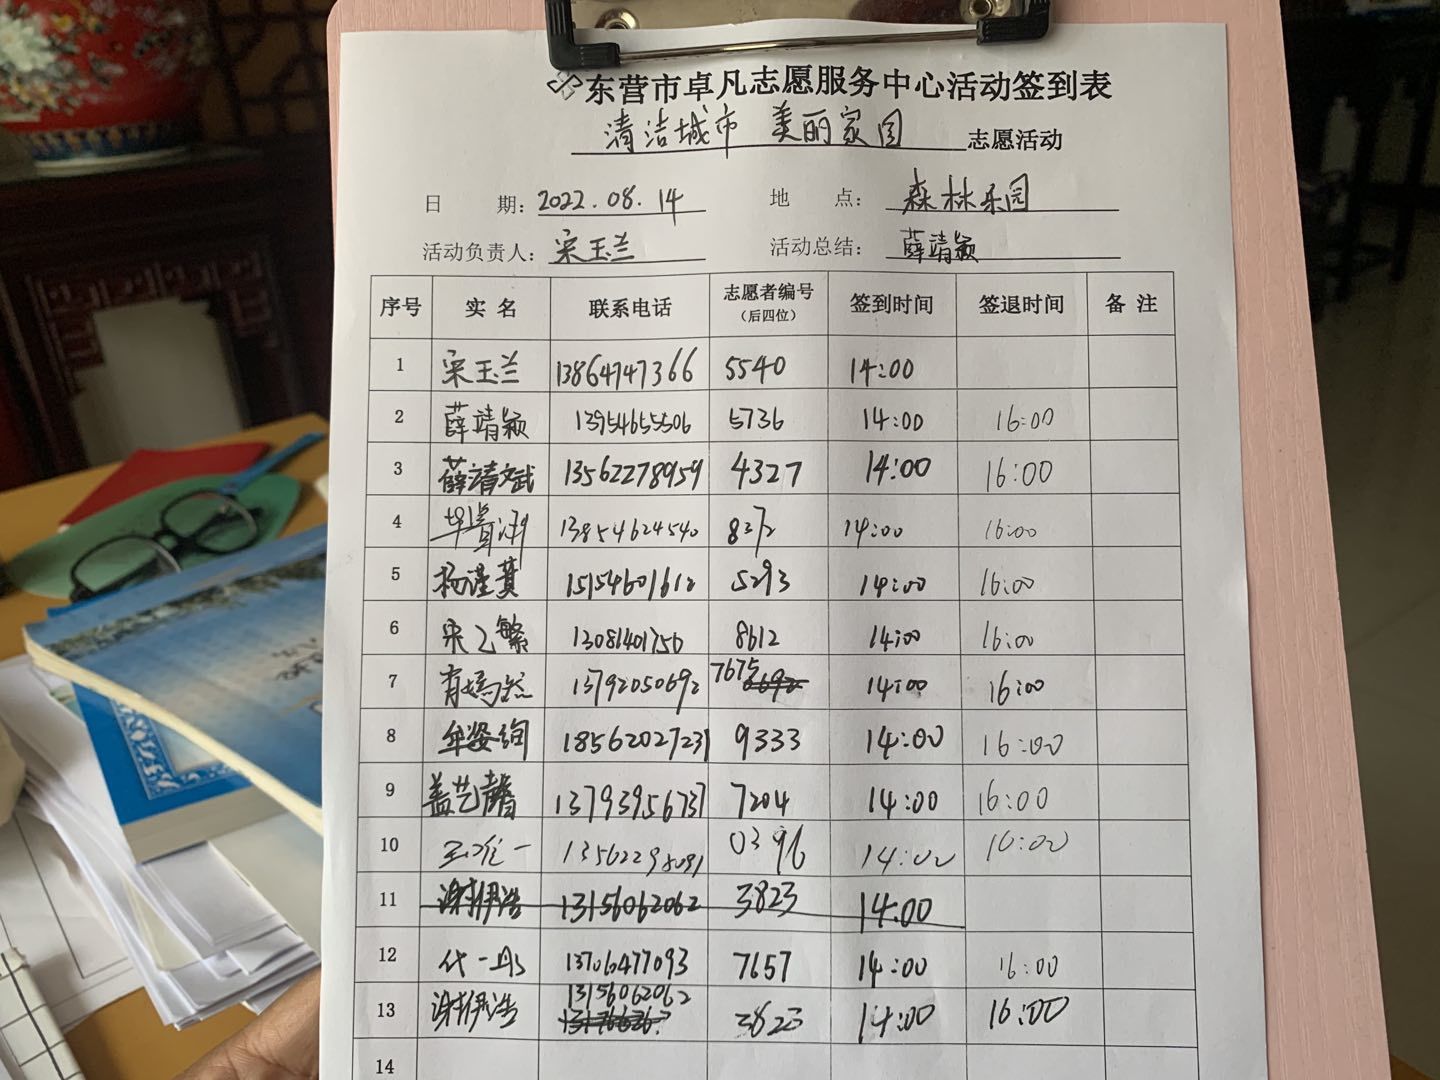 东营市卓凡志愿服务中心活动签到表
清洁城市 美丽家园 志愿活动
日 期：2022.08.14 地 点：森林乐园
活动负责人：宋玉兰 活动总结：薛靖颖
序号 实名 联系电话 志愿者编号（后四位） 签到时间 签退时间 备注
1 宋玉兰 13864747366 5540 14:00
2 薛靖颖 13954655506 5736 14:00 16:00
3 薛靖斌 13562278959 4327 14:00 16:00
4 13854624540 8272 14:00 16:00
5 杨谨萁 15154601612 5293 14:00 16:00
6 宋乙繁 13081401750 8612 14:00 16:00
7 13792050692 7675 14:00 16:00
8 牟姿绚 18562027231 9333 14:00 16:00
9 盖艺馨 13793956737 7204 14:00 16:00
10 0396 14:00 16:00
11 谢伊浩 13156062062 3823 14:00
12 代一彤 13706477093 7657 14:00 16:00
13 谢伊浩 13156062062 3823 14:00 16:00
14